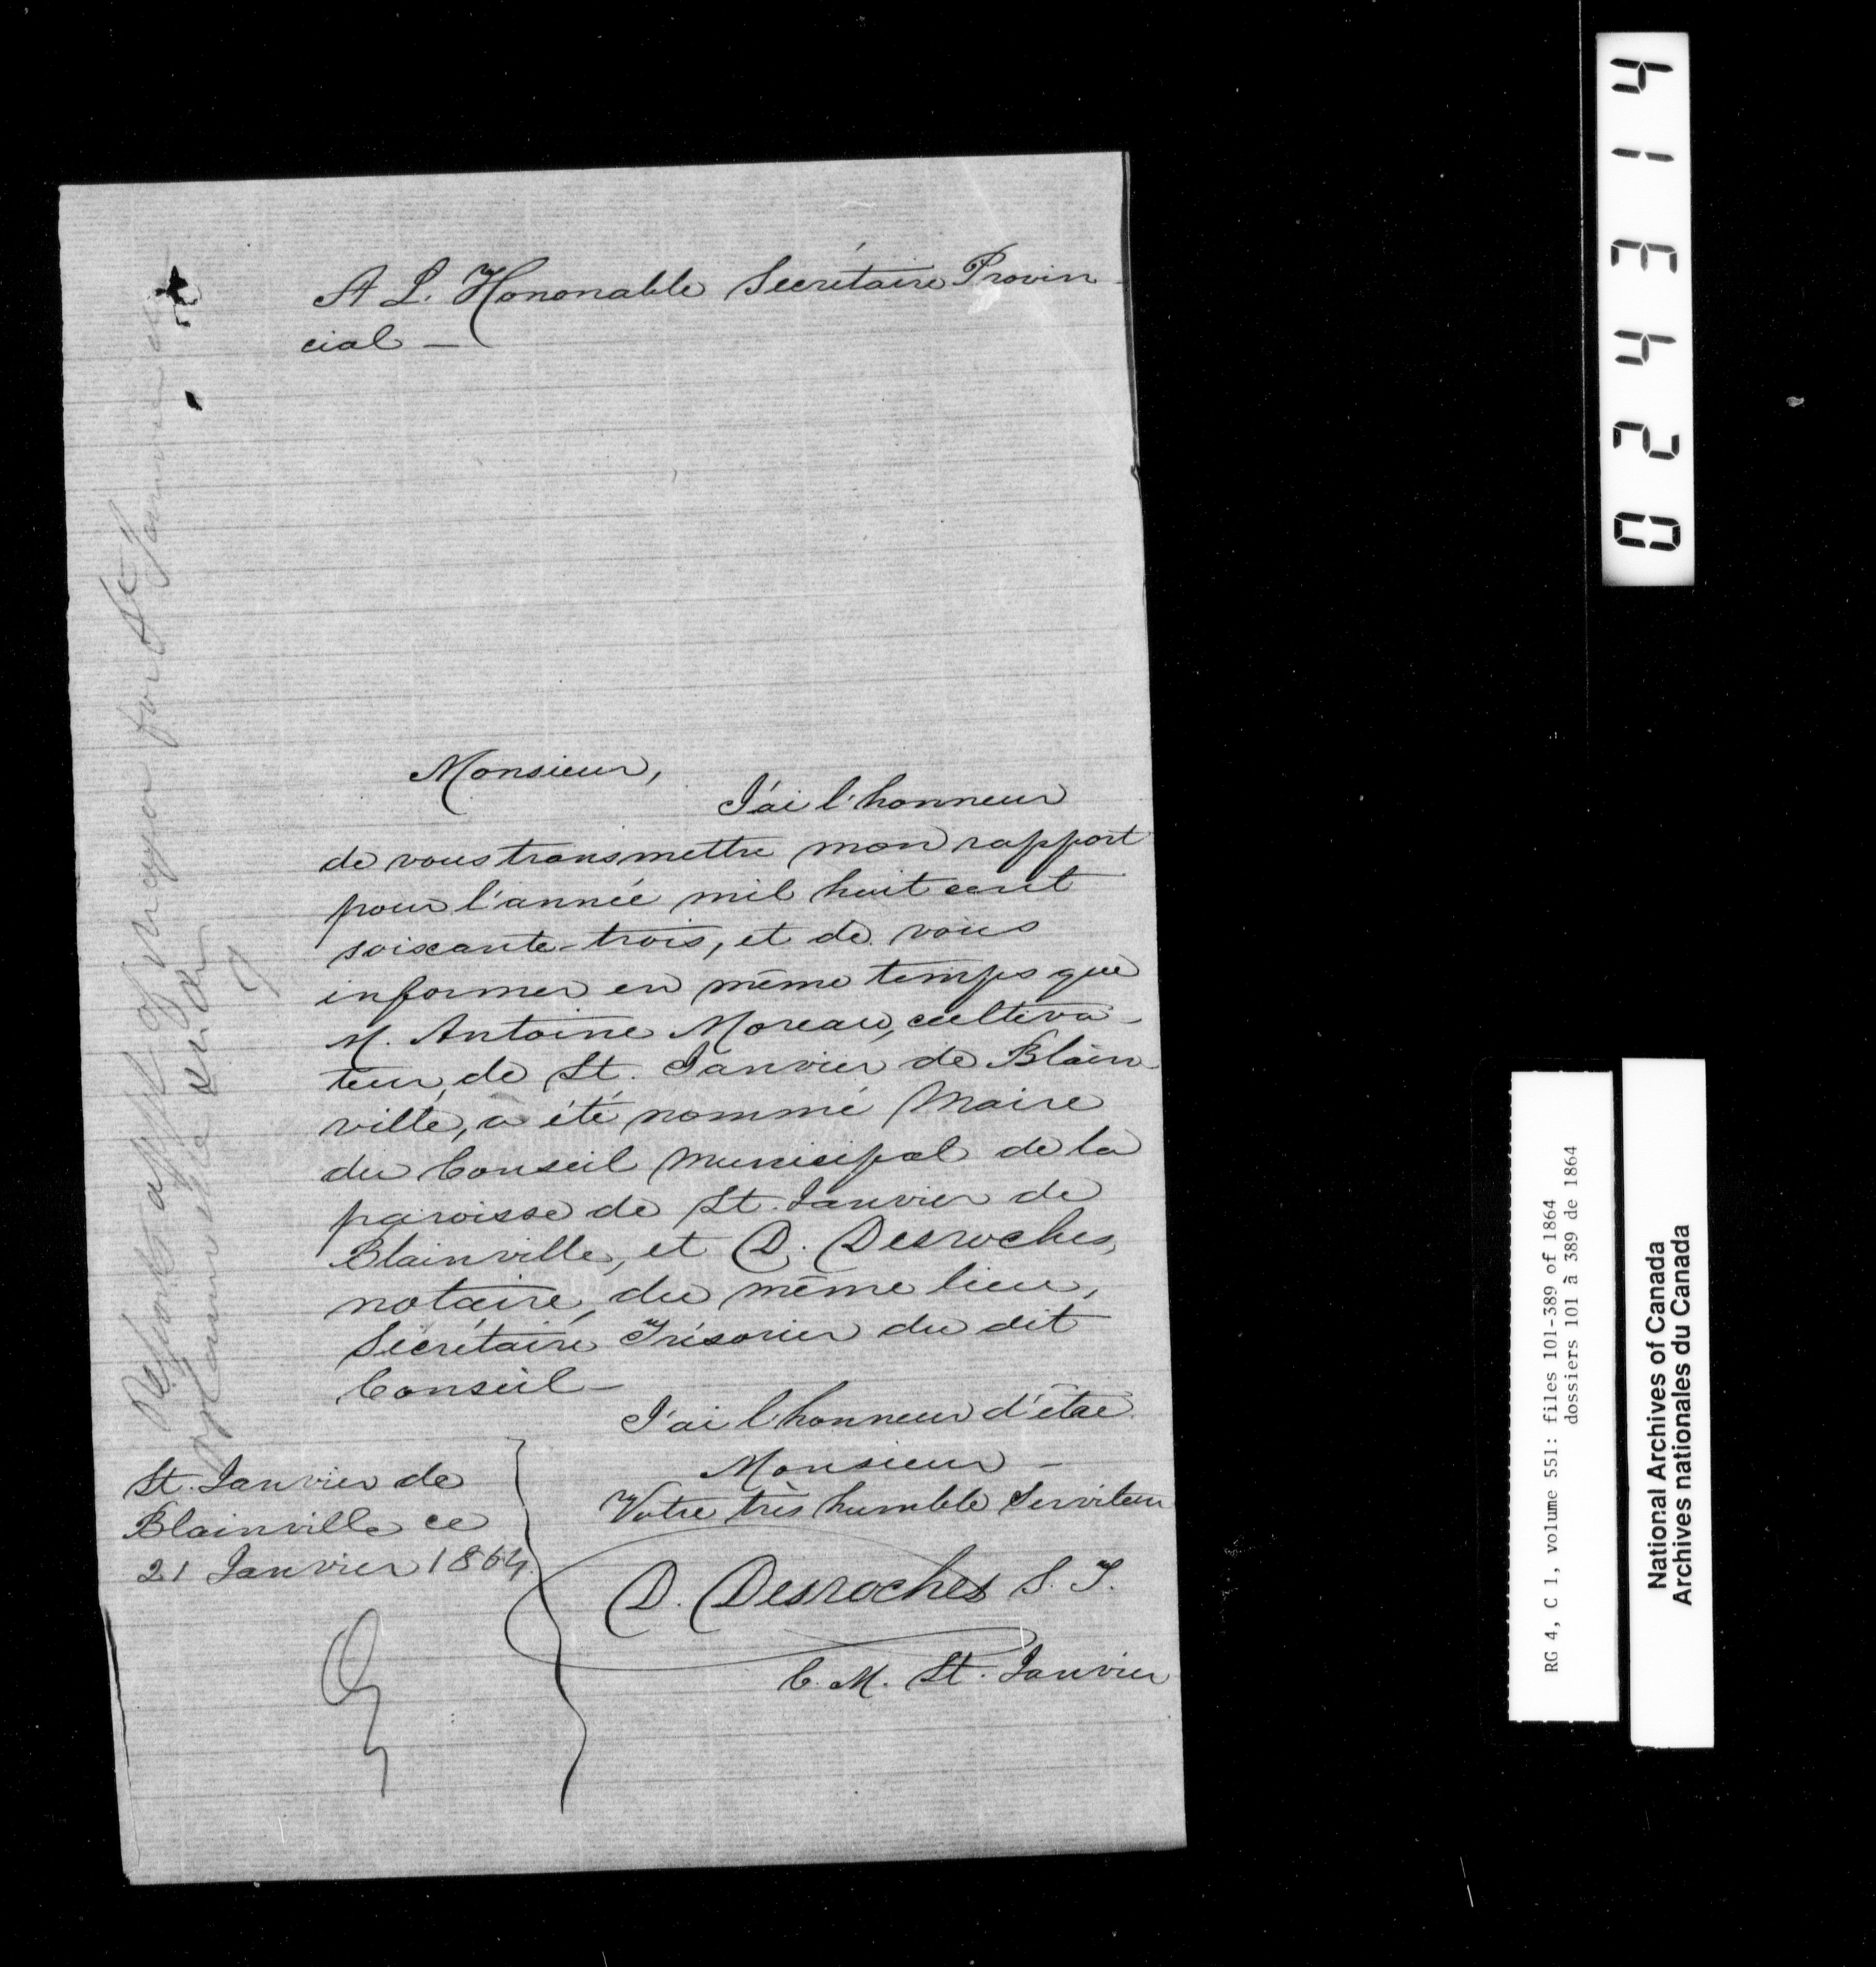 A L. Hononable Secrétaire Provin-
cial —
Monsieur,
J'ai l'honneur
de vous transmettre mon rapport
pour l'année mil huit cent
soixante-trois, et de vous
informer en même temps que
M. Antoine Moreau, cultiva-
teur, de St. Janvier de Blain-
ville, a été nommé Maire
du Conseil Municipal de la
paroisse de St. Janvier de
Blainville, et D. Desroches,
notaire, du même lieu,
Sécrétaire Trésorier du dit
Conseil —
J'ai l'honneur d'être
Monsieur —
Votre très humble Serviteur
D. Desroches S. T.
C. M. St. Janvier
St. Janvier de
Blainville ce
21 Janvier 1864
Reports appt of Mayor for St
024314
RG 4, C 1, volume 551: files 101-389 of 1864
dossiers 101 à 389 de 1864
National Archives of Canada
Archives nationales du Canada